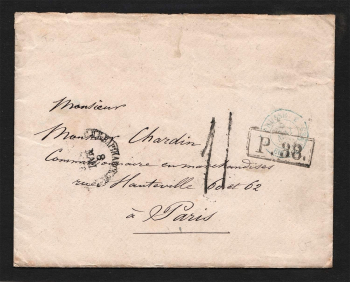 Monsieur
Monsieur Chardin
Commissionnaire en marchandises
rue Hauteville 60 et 62
à Paris
11
P. 38.
8